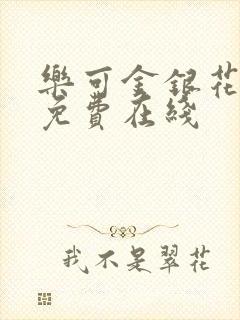 樂可金銀花
免費在綫
我不是翠花